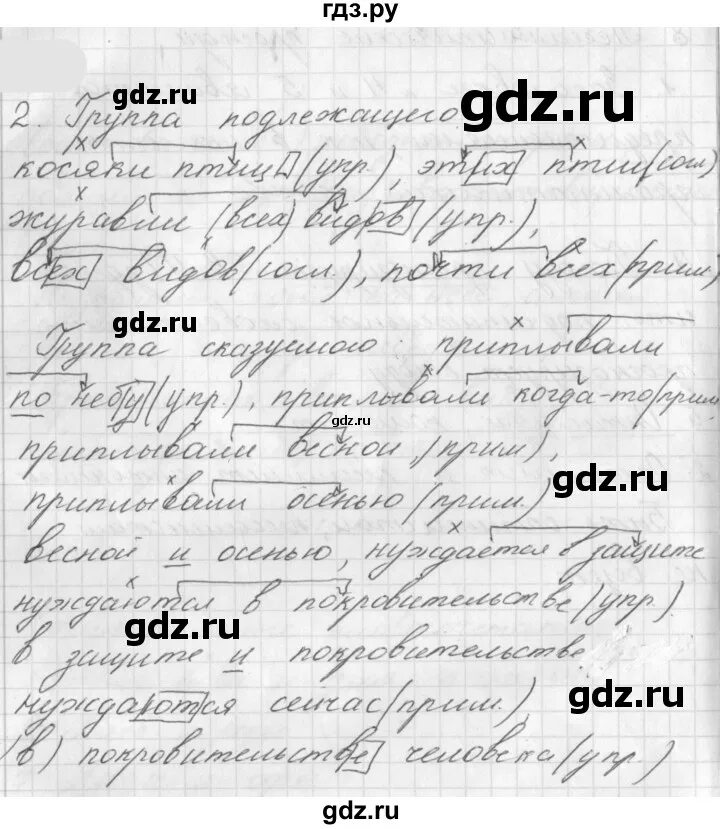 гдз.ру
gdz.ru gdz.ru
2. Группа подлежащего
косяки птиц (упр.), этих птиц (согл.)
журавли (всех) видов (упр.),
всех видов (согл.), почти всех (прим.)
gdz.ru gdz.ru
Группа сказуемого приплывали
по небу (упр.), приплывали когда-то (прим.
gdz.ru
приплывали весной, (прим.),
gdz.ru gdz.ru
приплывали осенью (прим.)
весной и осенью, нуждается в защите
нуждаются в покровительстве (упр.)
gdz.ru
в защите и покровительстве
gdz.ru
нуждаются сейчас (прим.),
(в) покровительстве человека (упр.)
gdz.ru